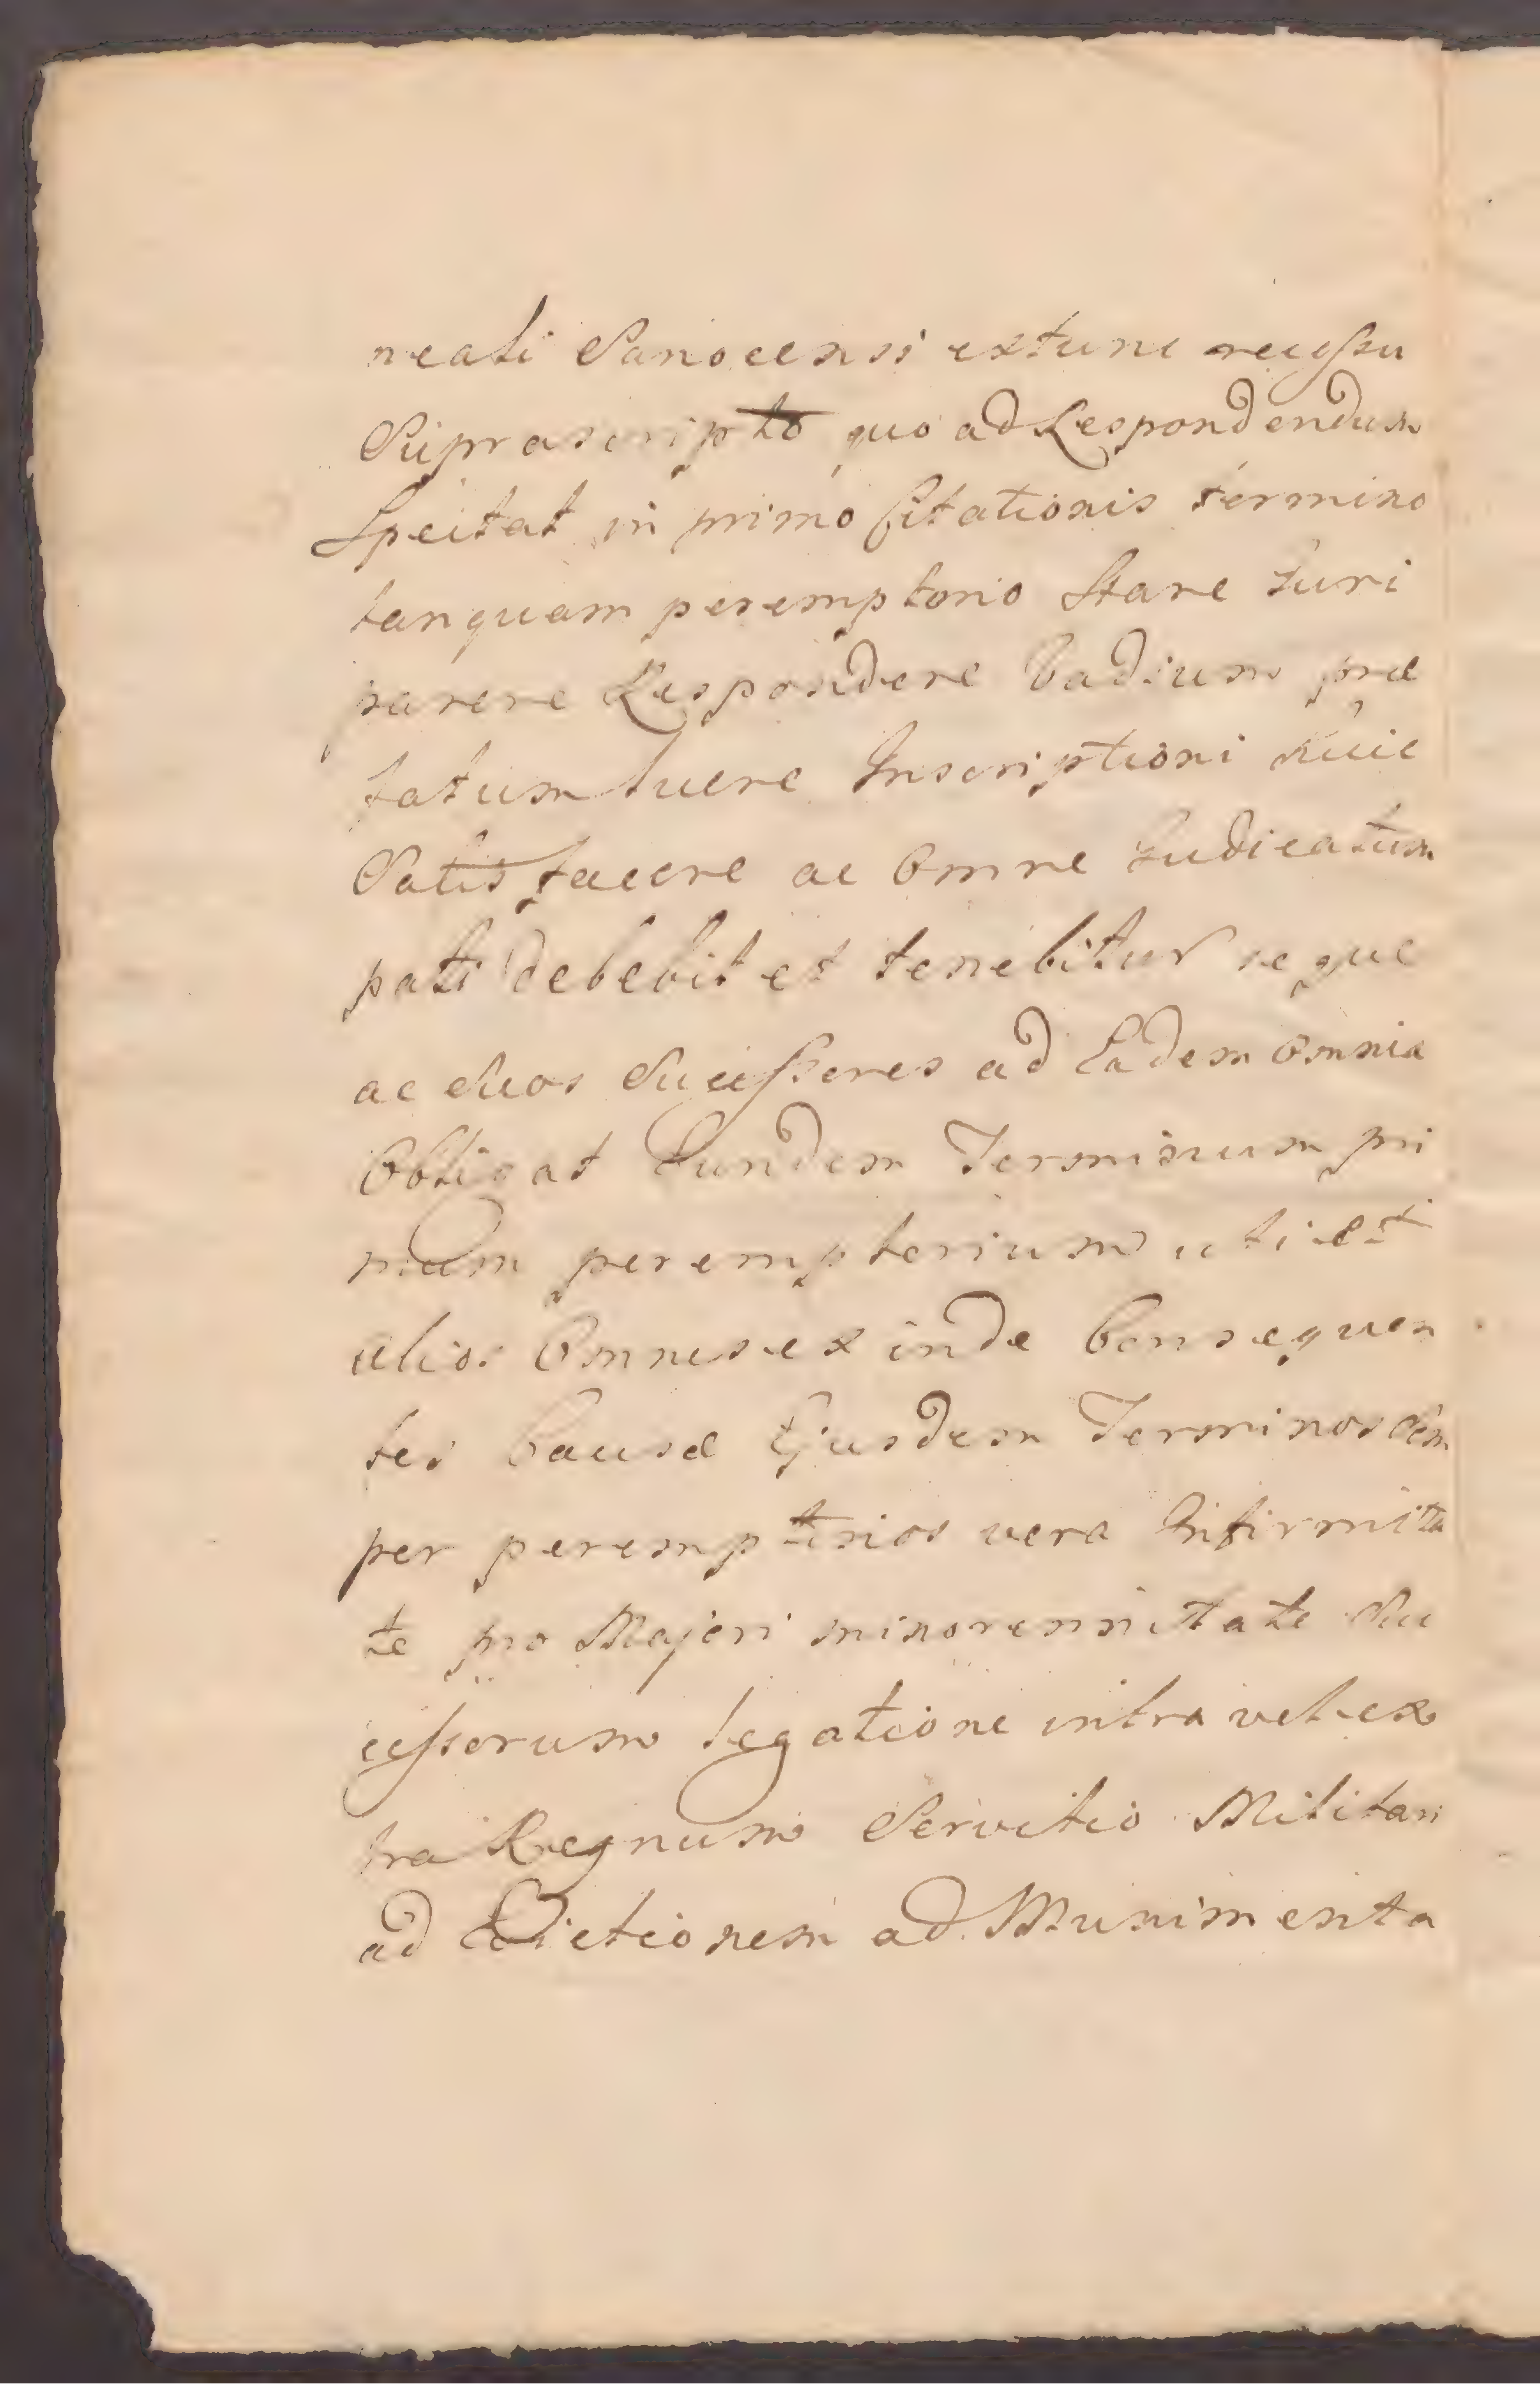 neali Sanocensi extunc recessu
Suprascripto quo ad Respondendum
Spectat in primo Citationis termino
tanquam peremptorio Stare Iuri
parere Respondere Vadium præ
fatum luere Inscriptioni huic
Satisfacere ac Omne Iudicatum
pati debebit et tenebitur seque
ac Suos Successores ad Eadem Omnia
Obligat Eundem Terminum pri
mum peremptorium uti et
alios Omnes exinde Consequen
tes Causæ Ejusdem Terminos Sem
per peremptorios vera Infirmita
te pro Majori minorennitate Su
cessorum legatione intra vel ex
tra Regnum Servitio Militari
ad Edictionem ad Munimenta